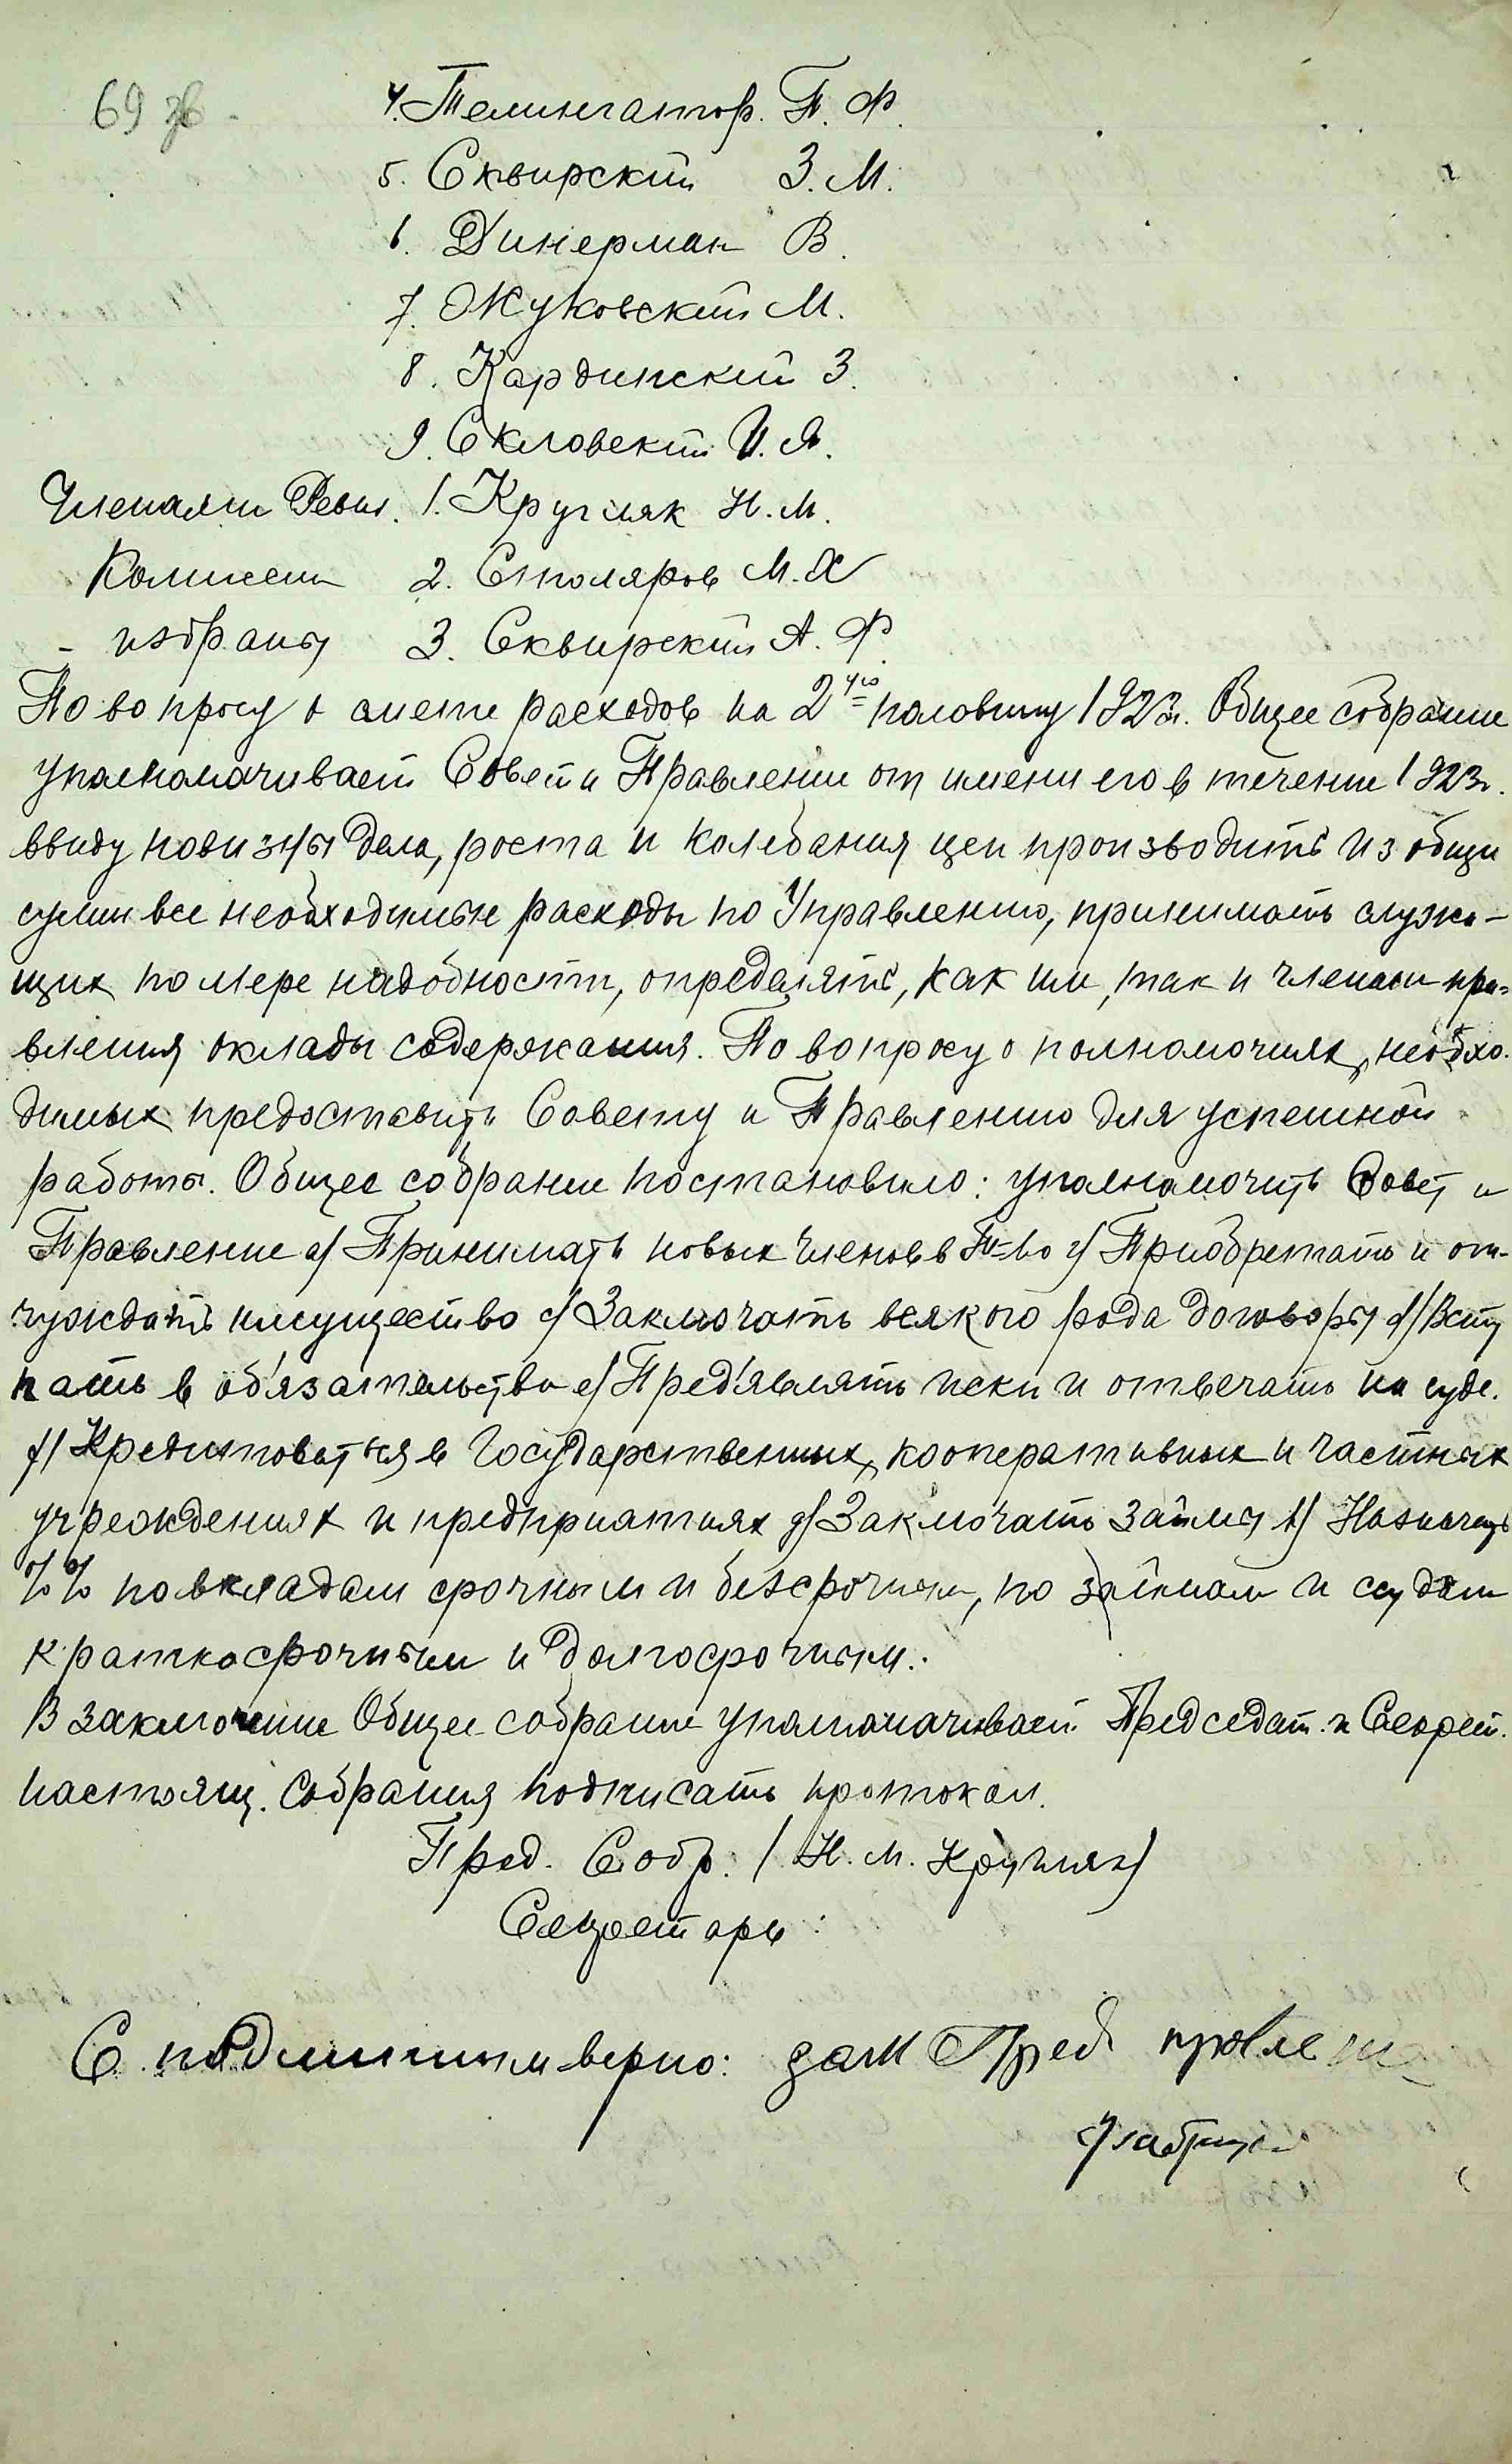 69 зв.
4. Телингатор. П. Ф.
5. Сквирский З. М.
6. Динерман В.
7. Жуковский М.
8. Кардинский З.
9. Скловский И. Я.
Членами Ревиз. 1. Кругляк Н. М.
Комиссии 2. Столяров М. Х
- избраны 3. Сквирский А. Ф.
По вопросу о смете расходов на 2ую половину 1923г. Общее собрание
уполномачивает Совет и Правление от имени его в течение 1923г.
ввиду новизны дела, роста и колебания цен производить из общи
сумм все необходимые расходы по Управлению, принимать служа-
щих по мере надобности, определять, как им, так и членам пра-
вления оклады содержания. По вопросу о полномочиях, необхо-
димых предоставить Совету и Правлению для успешной
работы. Общее собрание постановило: уполномочить Совет и
Правление a/ Принимать новых членов в Т-во в/ Приобретать и от-
чуждать имущество c/ Заключать всякого рода договоры d/ Всту
пать в об'язательства e/ Пред'являть иски и отвечать на суде.
f/ Кредитоваться в Государственных, кооперативных и частных
учреждениях и предприятиях g/ Заключать займы h/ Назначать
%% по вкладам срочным и безсрочным, по займам и ссудам
краткосрочным и долгосрочным.
В заключение Общее собрание уполномачивает Председат. и Секрет.
настоящ. Собрания подписать протокол.
Пред. Собр. / Н. М. Кругляк/
Секретарь:
С подлинным верно: зам Пред правления